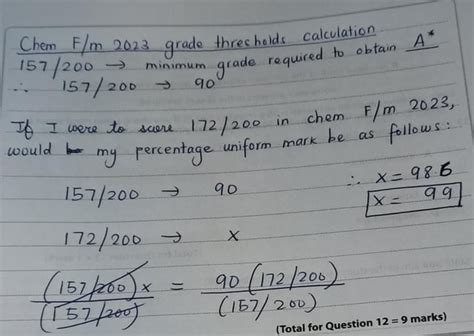 Chem F/m 2023 grade thresholds calculation
157/200 → minimum grade required to obtain A*
∴ 157/200 → 90
If I were to score 172/200 in chem F/m 2023,
would my percentage uniform mark be as follows:
157/200 → 90
172/200 → x
(157/200)x / (157/200) = 90(172/200) / (157/200)
∴ x = 98.6
x = 99
(Total for Question 12 = 9 marks)